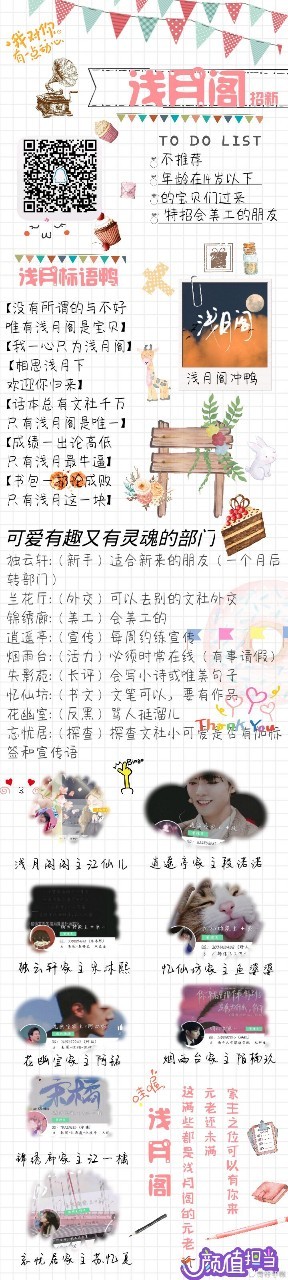 我对你
有一点动心
浅月阁招新
TO DO LIST
不推荐
年龄在14岁以下
的宝贝们过来
特招会美工的朋友
浅月标语鸭
【没有所谓的与不好
唯有浅月阁是宝贝】
【我一心只为浅月阁】
【相思浅月下
欢迎你归来】
【话本总有文社千万
只有浅月阁是唯一】
【成绩一出论高低
只有浅月最牛逼】
【书包一部论成败
只有浅月这一块】
浅月阁
浅月阁冲鸭
可爱有趣又有灵魂的部门
独云轩:（新手）适合新来的朋友（一个月后
转部门）
兰花厅:（外交）可以去别的文社外交
锦绣廊:（美工）会美工的
逍遥亭:（宣传）每周约练宣传
烟雨台:（活力）必须时常在线（有事请假）
失影苑:（长评）会写小诗或唯美句子
忆仙坊:（书文）文笔可以，要有作品
花幽室:（反黑）骂人挺溜儿
忘忧居:（探查）探查文社小可爱是否有加标
签和宣传语
Thank You
Bingo
浅月阁阁主江仙儿
逍遥亭家主段诺诺
独云轩家主宋沐熙
忆仙坊家主鱼婆婆
花幽室家主陌铭
烟雨台家主陌柳玖
锦绣廊家主江一橘
忘忧居家主苏忆美
哇喔
浅月阁
这满些都是浅月阁的元老
元老还未满
家主之位可以有你来
颜值担当